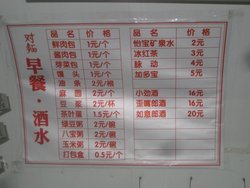 对面
早餐·酒水
品名 价格 品名 价格
鲜肉包 1元/个 怡宝矿泉水 2元
酱肉包 1元/个 冰红茶 3元
芽菜包 1元/个 脉动 4元
馒头 1元/个 加多宝 5元
油条 2元/根
麻圆 2元/个
豆浆 2元/杯 小劲酒 16元
茶叶蛋 1.5元/个 歪嘴郎酒 16元
绿豆粥 2元/碗 如意郎酒 20元
八宝粥 2元/碗
玉米粥 2元/碗
打包盒 0.5元/个